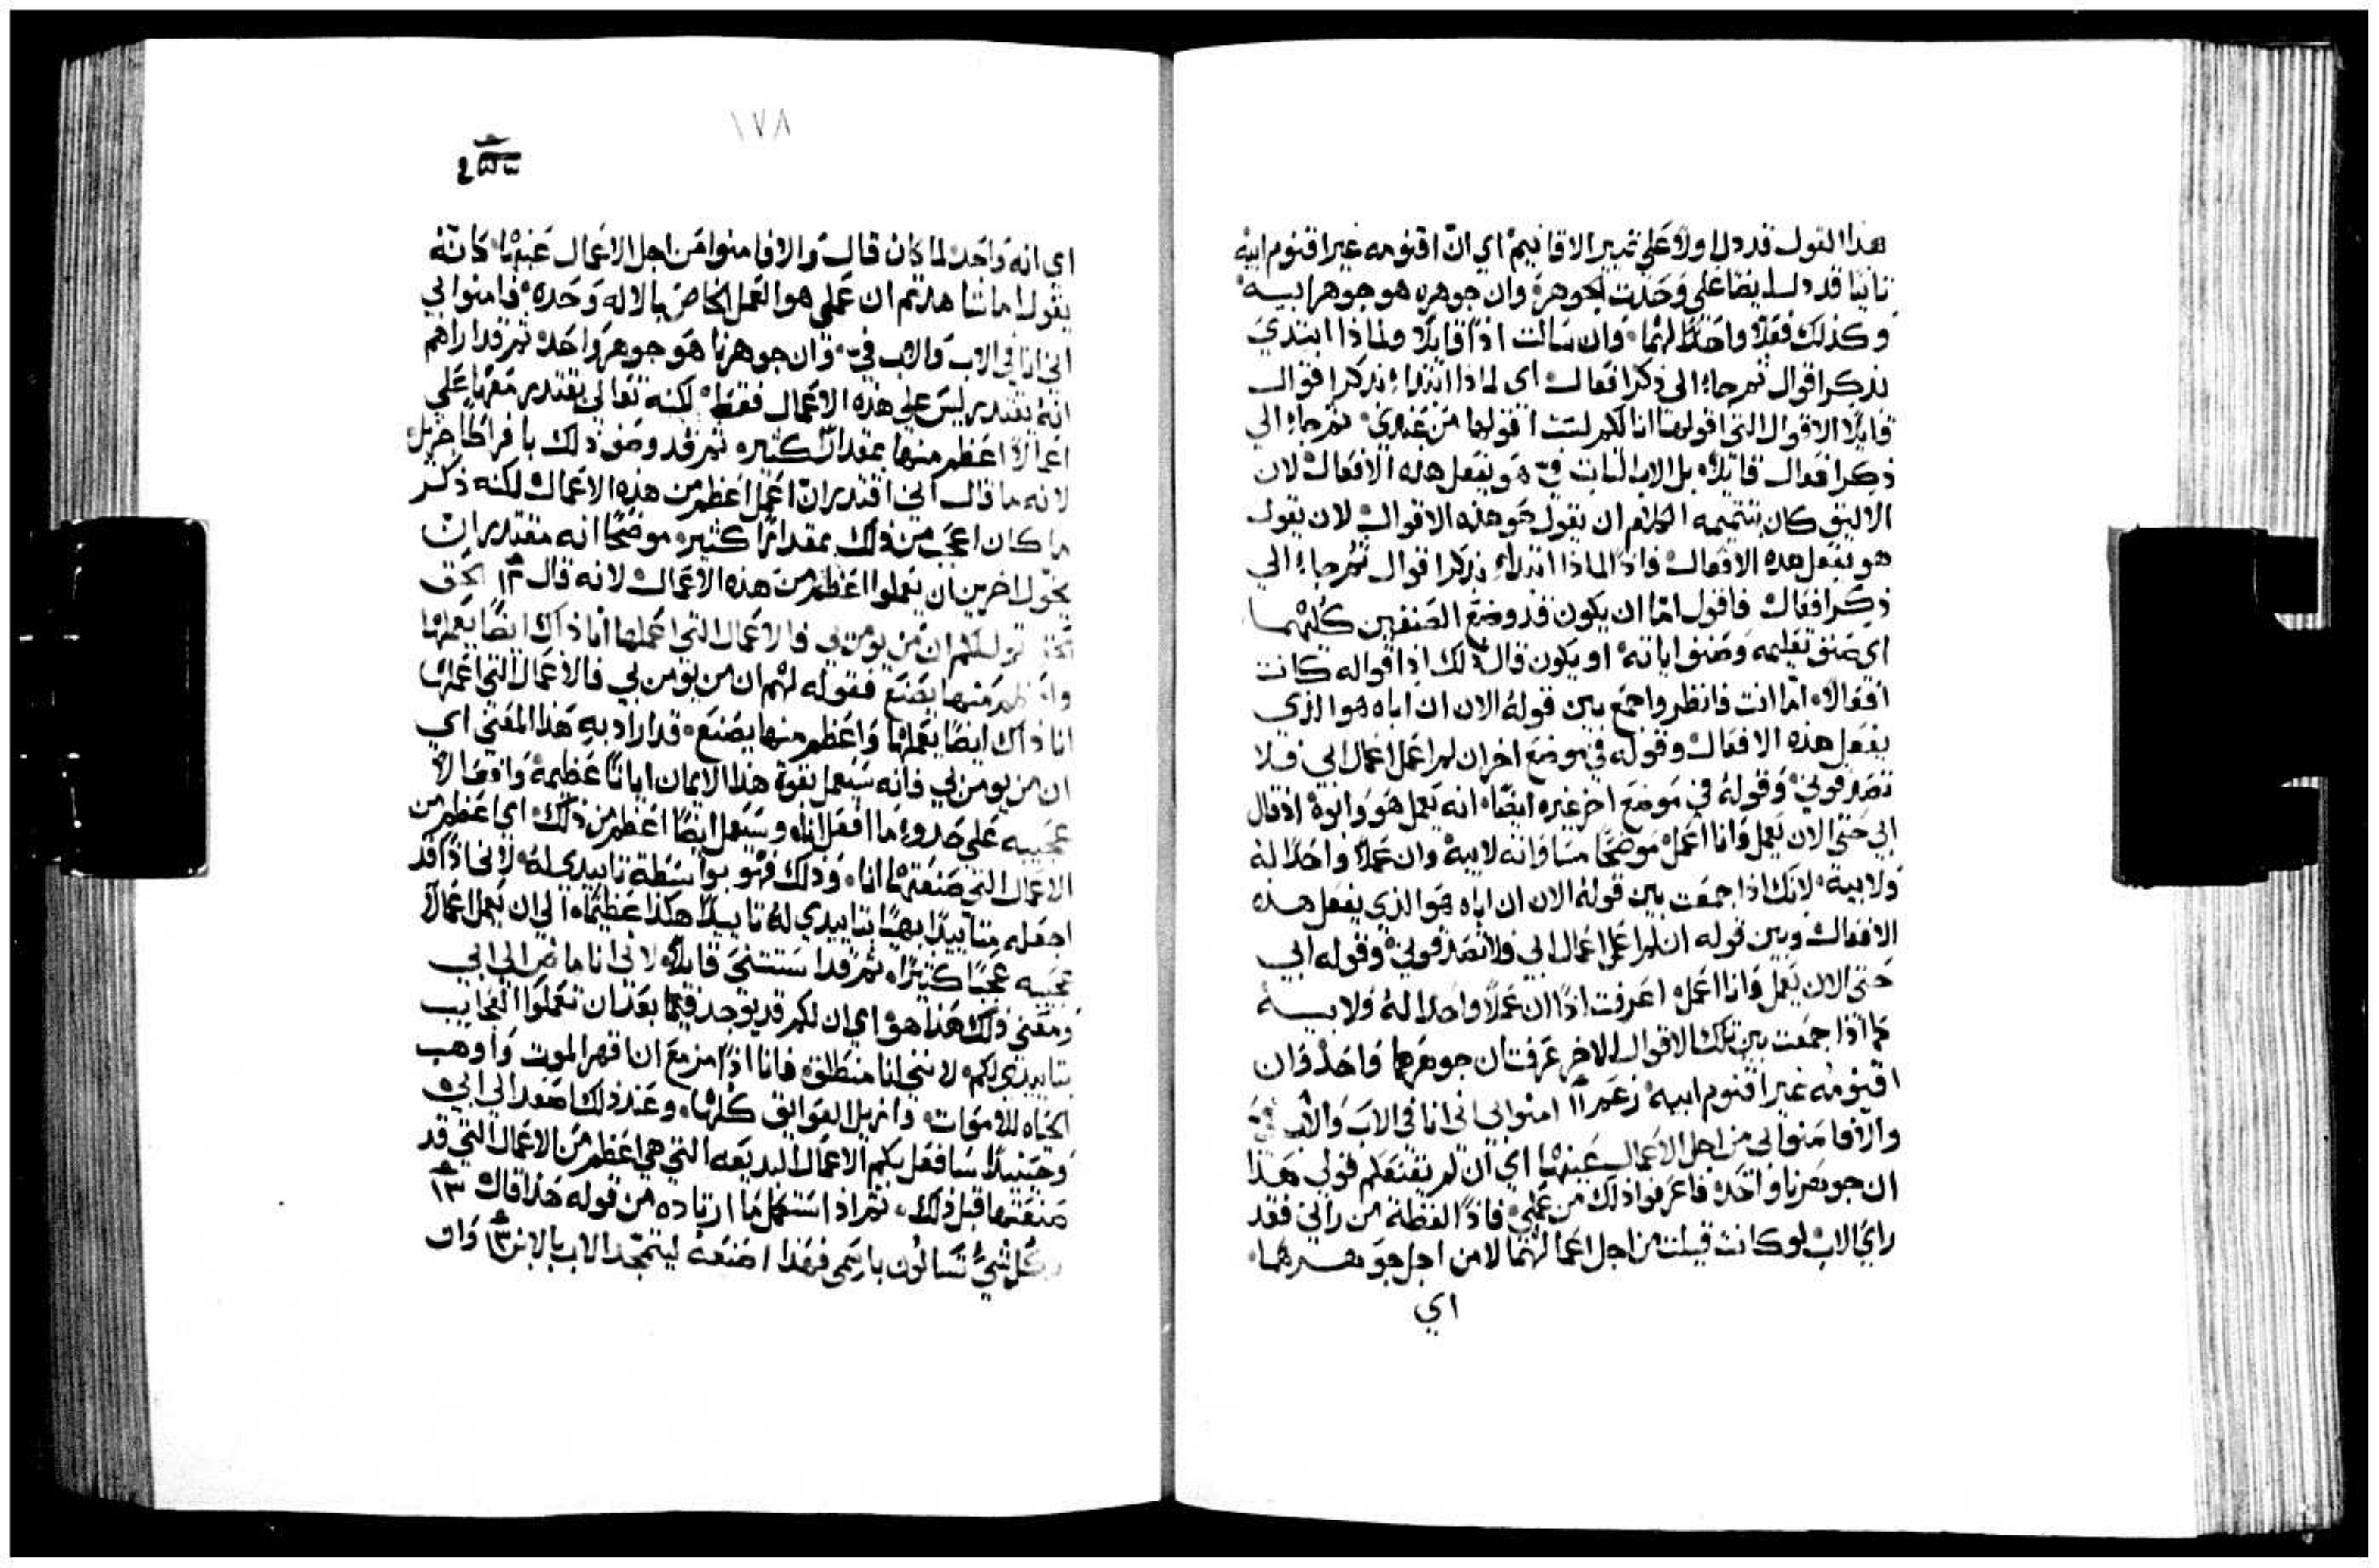 هذا القول قد دل اولاً علي تمييز الاقانيم اي انّ اقنومه غير اقنوم ابيه
ثانياً قد دل ايضاً علي وَحَديت الجوهرة وان جوهره هو جوهر ابيه
وكذلك فعلاً واحداً لهما وان سالت اذاً قايلاً ولماذا ابتدي
بذكر اقوال ثم جاء الى ذكر افعال اى لماذا ابتداء بذكر اقوال
قايلا الاقوال التي اقولها انا لكم لست اقولها من عندي ثم جاء الي
ذكر افعال قايلاً بل الاب الثابت فيّ هو يفعل هذه الافعال لان
الاليق كان بتتميمه الكلام ان يقول هو هذه الاقوال لان يقول
هو يفعل هذه الافعال فاذاً لماذا ابتداء بذكر اقوال ثم جاء الي
ذكر افعال فاقول امّا ان يكون قد وضع الصنفين كليهما
اي صنف تعليمه وصنف اياته او يكون قال ذلك اذ اقواله كانت
افعالاً امّا انت فانظر واجمع بين قوله الان ان اباه هو الذي
يفعل هذه الافعال وقوله في موضع اخر ان لم اعمل اعمال ابي فلا
تصدقوني وقوله في موضع اخر غيره ايضاً انه يعمل هو وابوه اذ قال
ابي حتى الان يعمل وانا اعمل موضحاً مساواته لابيه وان عملاً واحداً له
ولابيه لانك اذا جمعت بين قوله الان ان اباه هو الذي يفعل هذه
الافعال وبين قوله ان لم اعمل اعمال ابي فلا تصدقوني وقوله ابي
حتى الان يعمل وانا اعمل اعرفت اذاً ان عملاً واحدا له ولابيه
كما اذا جمعت بين تلك الاقوال الاخر عرفت ان جوهرهما واحد وان
اقنومه غير اقنوم ابيه زعم امنوا بي اني انا في الاب والاب فيّ
والا فامنوا لي من اجل الاعمال عينها اي ان لم يقنعكم قولي هذا
ان جوهرنا واحد فاعرفوا ذلك من عملي فاذاً لفظة من راني فقد
راي الاب لو كانت قيلت من اجل اعمالهما لا من اجل جوهرهما
اي
١٧٨
اي انه واحد لما كان قال والا فامنوا من اجل الاعمال عينها كانه
يقول اما شاهدتم ان عملي هو العمل الخاص بالاله وحده فامنوا بي
اني انا في الاب والاب فيّ وان جوهرنا هو جوهر واحد ثم قد اراهم
انه يقتدر ليس علي هذه الاعمال فقط لكنه تعالي يقتدر معها علي
اعمالاً اعظم منها بمقدار كثير ثم قد وضع ذلك بافراط جزيل
لانه ما قال اني اقتدر انّ اعمل اعظم من هذه الاعمال لكنه ذكر
ما كان اعجب من ذلك بمقدار كثير موضحاً انه مقتدر ان
يخول اخرين ان يعملوا اعظم من هذه الاعمال لانه قال ١٢ الحق
اقول لكم ان من يومن بي فالاعمال التي اعملها انا ذاك ايضاً يعملها
واعظم منها يصنع فقوله لهم ان من يومن بي فالاعمال التي اعملها
انا ذاك ايضاً يعملها واعظم منها يصنع قد اراد به هذا المعني اي
ان من يومن بي فانه سيعمل بقوة هذا الايمان اياتاً عظيمة وافعالاً
عجيبه علي حدو ما افعل انا وسيعمل ايضاً اعظم من ذلك اي اعظم من
الاعمال التي صنعتها انا وذلك فهو بواسطة تاييدي له لاني اذاً قد
اجعله متاييداً بهياً بتاييدي له تاييداً هكذا عظيماً الي ان يعمل اعمالاً
عجيبه عجباً كثيراً ثم قد استنتج قايلاً لاني انا ماض الي ابي
ومعني ذلك هذا هو اي ان لكم قد يوجد فيما بعد ان تعملوا العجايب
بتاييدي لكم لانني انا منطلق فانا اذاً مزمع ان اقهر الموت واوهب
الحياه للاموات وازيل العوايق كلها وعند ذلك اصعد الي ابي
وحينيذٍ سافعل بكم الاعمال البديعه التي هي اعظم من الاعمال التي قد
صنعتها قبل ذلك ثم اذ استكمل ما ارتاده من قوله هذا قال ١٣
وكل شيء تسالون باسمي فهذا اصنعه ليتمجد الاب بالابن ١٣ وان